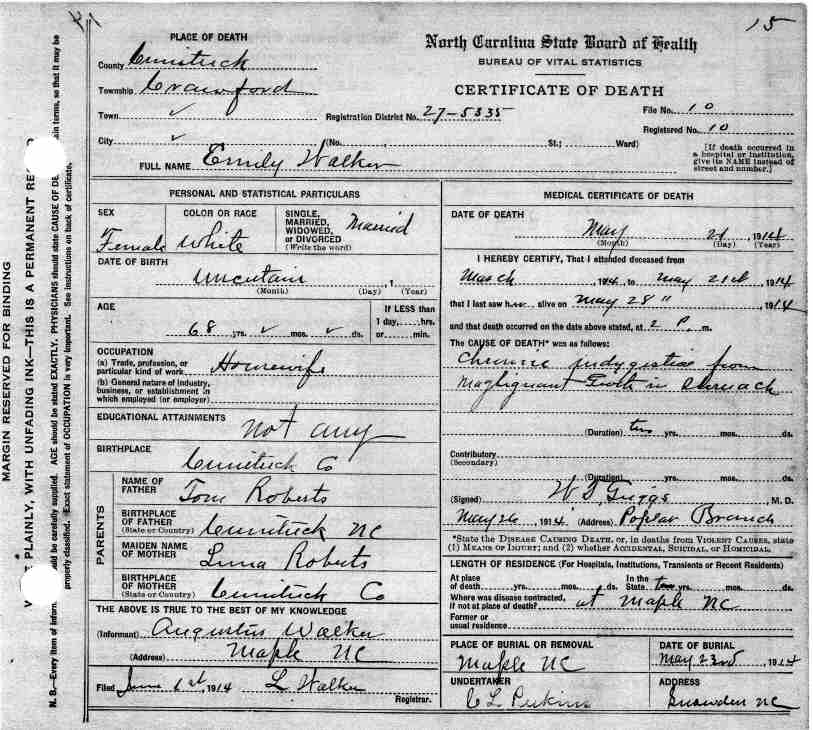 15
PLACE OF DEATH
North Carolina State Board of Health
BUREAU OF VITAL STATISTICS
CERTIFICATE OF DEATH
County Currituck
Township Crawford
Town ✓
Registration District No. 27-5335
File No. 10
Registered No. 10
City ✓ (No. , St.; Ward)
[If death occurred in a hospital or institution, give its NAME instead of street and number.]
FULL NAME Emily Walker
PERSONAL AND STATISTICAL PARTICULARS
SEX
Female
COLOR OR RACE
White
SINGLE, MARRIED, WIDOWED, or DIVORCED
(Write the word)
Married
DATE OF BIRTH
uncertain , 1
(Month) (Day) (Year)
AGE
68 yrs. ✓ mos. ✓ ds.
If LESS than
1 day, hrs.
or min.
OCCUPATION
(a) Trade, profession, or
particular kind of work Housewife
(b) General nature of industry,
business, or establishment in
which employed (or employer)
EDUCATIONAL ATTAINMENTS
not any
BIRTHPLACE
Currituck Co
PARENTS
NAME OF FATHER
Tom Roberts
BIRTHPLACE OF FATHER
(State or Country)
Currituck NC
MAIDEN NAME OF MOTHER
Roberts
BIRTHPLACE OF MOTHER
(State or Country)
Currituck Co
THE ABOVE IS TRUE TO THE BEST OF MY KNOWLEDGE
(Informant) Augustus Walker
(Address) Maple NC
Filed June 1st, 1914 L Walker
Registrar.
MEDICAL CERTIFICATE OF DEATH
DATE OF DEATH
May 21 1914
(Month) (Day) (Year)
I HEREBY CERTIFY, That I attended deceased from
March 1914, to May 21st, 1914
that I last saw her alive on May 28", 1914
and that death occurred on the date above stated, at 2 P. m.
The CAUSE OF DEATH* was as follows:
Chronic indygistion from
Maglignant Groth in Stomach
(Duration) two yrs. mos. ds.
Contributory
(Secondary)
(Duration) yrs. mos. ds.
(Signed) W T Griggs M. D.
May 26, 1914 (Address) Poplar Branch
*State the DISEASE CAUSING DEATH, or, in deaths from VIOLENT CAUSES, state
(1) MEANS OF INJURY; and (2) whether ACCIDENTAL, SUICIDAL, or HOMICIDAL.
LENGTH OF RESIDENCE (For Hospitals, Institutions, Transients or Recent Residents)
At place of death yrs. mos. ds. In the State yrs. mos. ds.
Where was disease contracted,
if not at place of death? at Maple NC
Former or
usual residence
PLACE OF BURIAL OR REMOVAL
Maple NC
DATE OF BURIAL
May 23rd, 1914
UNDERTAKER
C L Perkins
ADDRESS
Snowden NC
MARGIN RESERVED FOR BINDING
PLAINLY, WITH UNFADING INK—THIS IS A PERMANENT
N. B.—Every item of inform. should be carefully supplied. AGE should be stated EXACTLY. PHYSICIANS should state CAUSE OF DE in terms, so that it may be
properly classified. Exact statement of OCCUPATION is very important. See instructions on back of certificate.